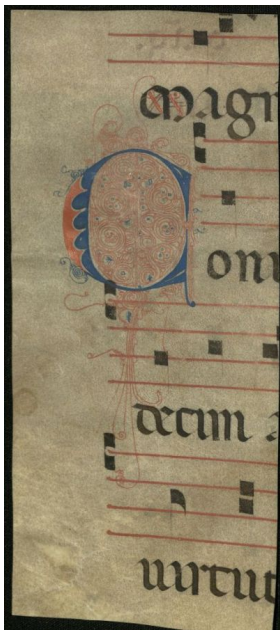 magn
Q
oni
decim
uirtut